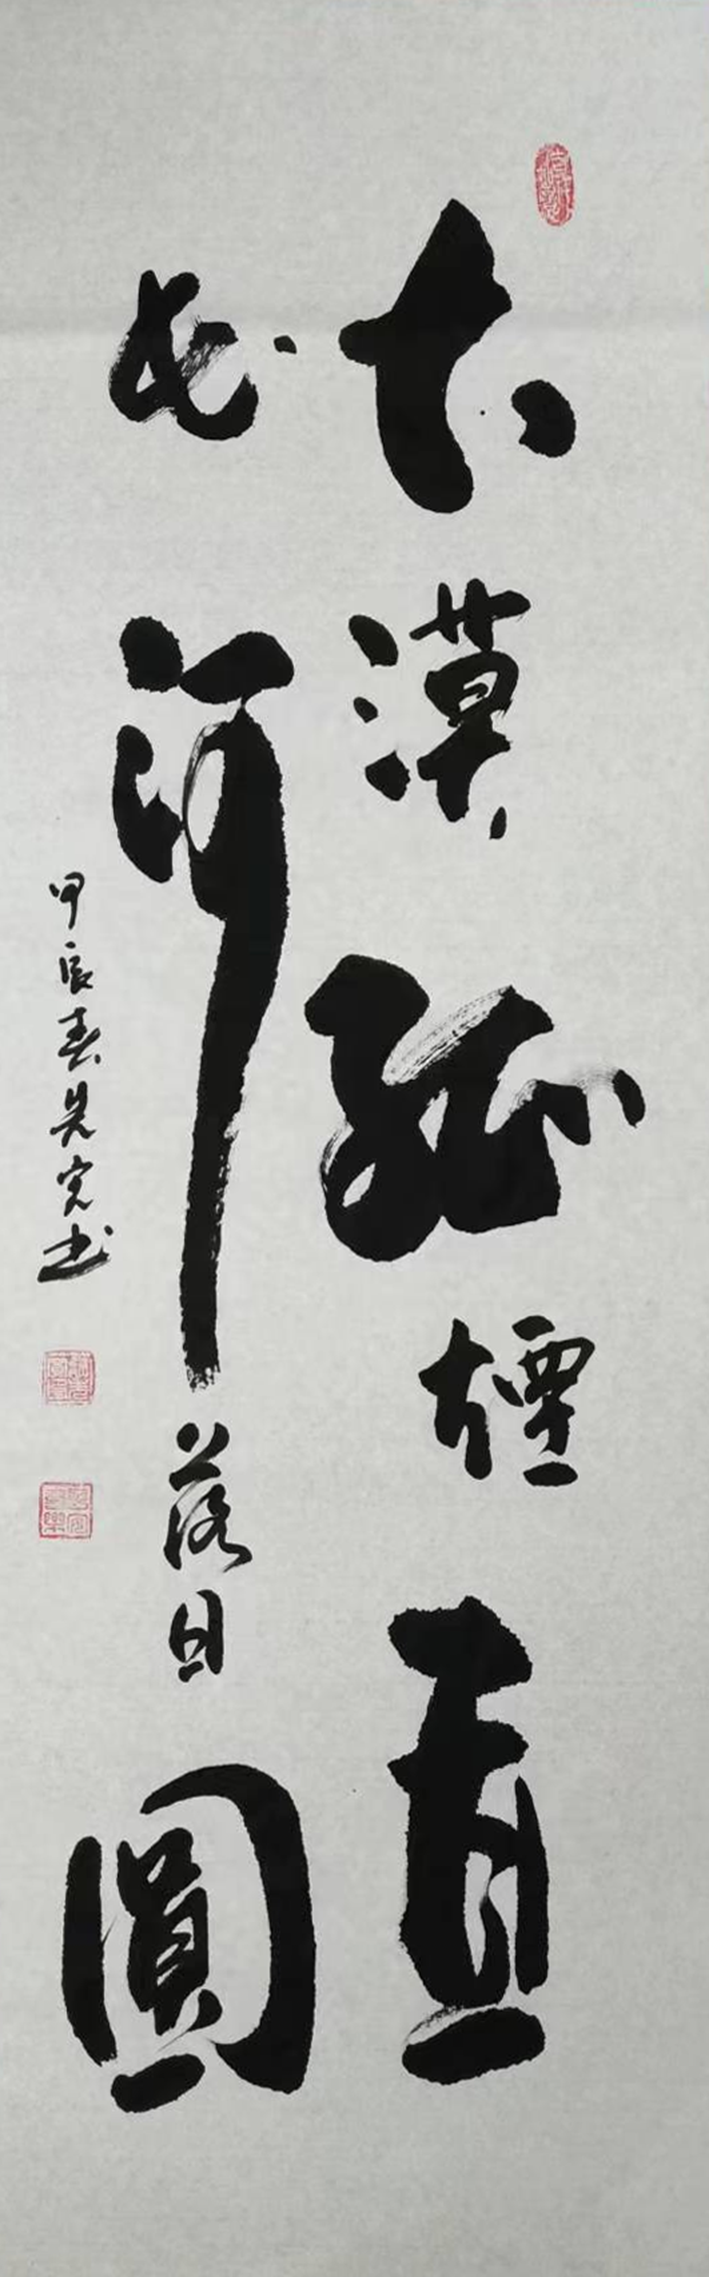 大漠孤煙直
長河落日圓
甲辰春吴寅书